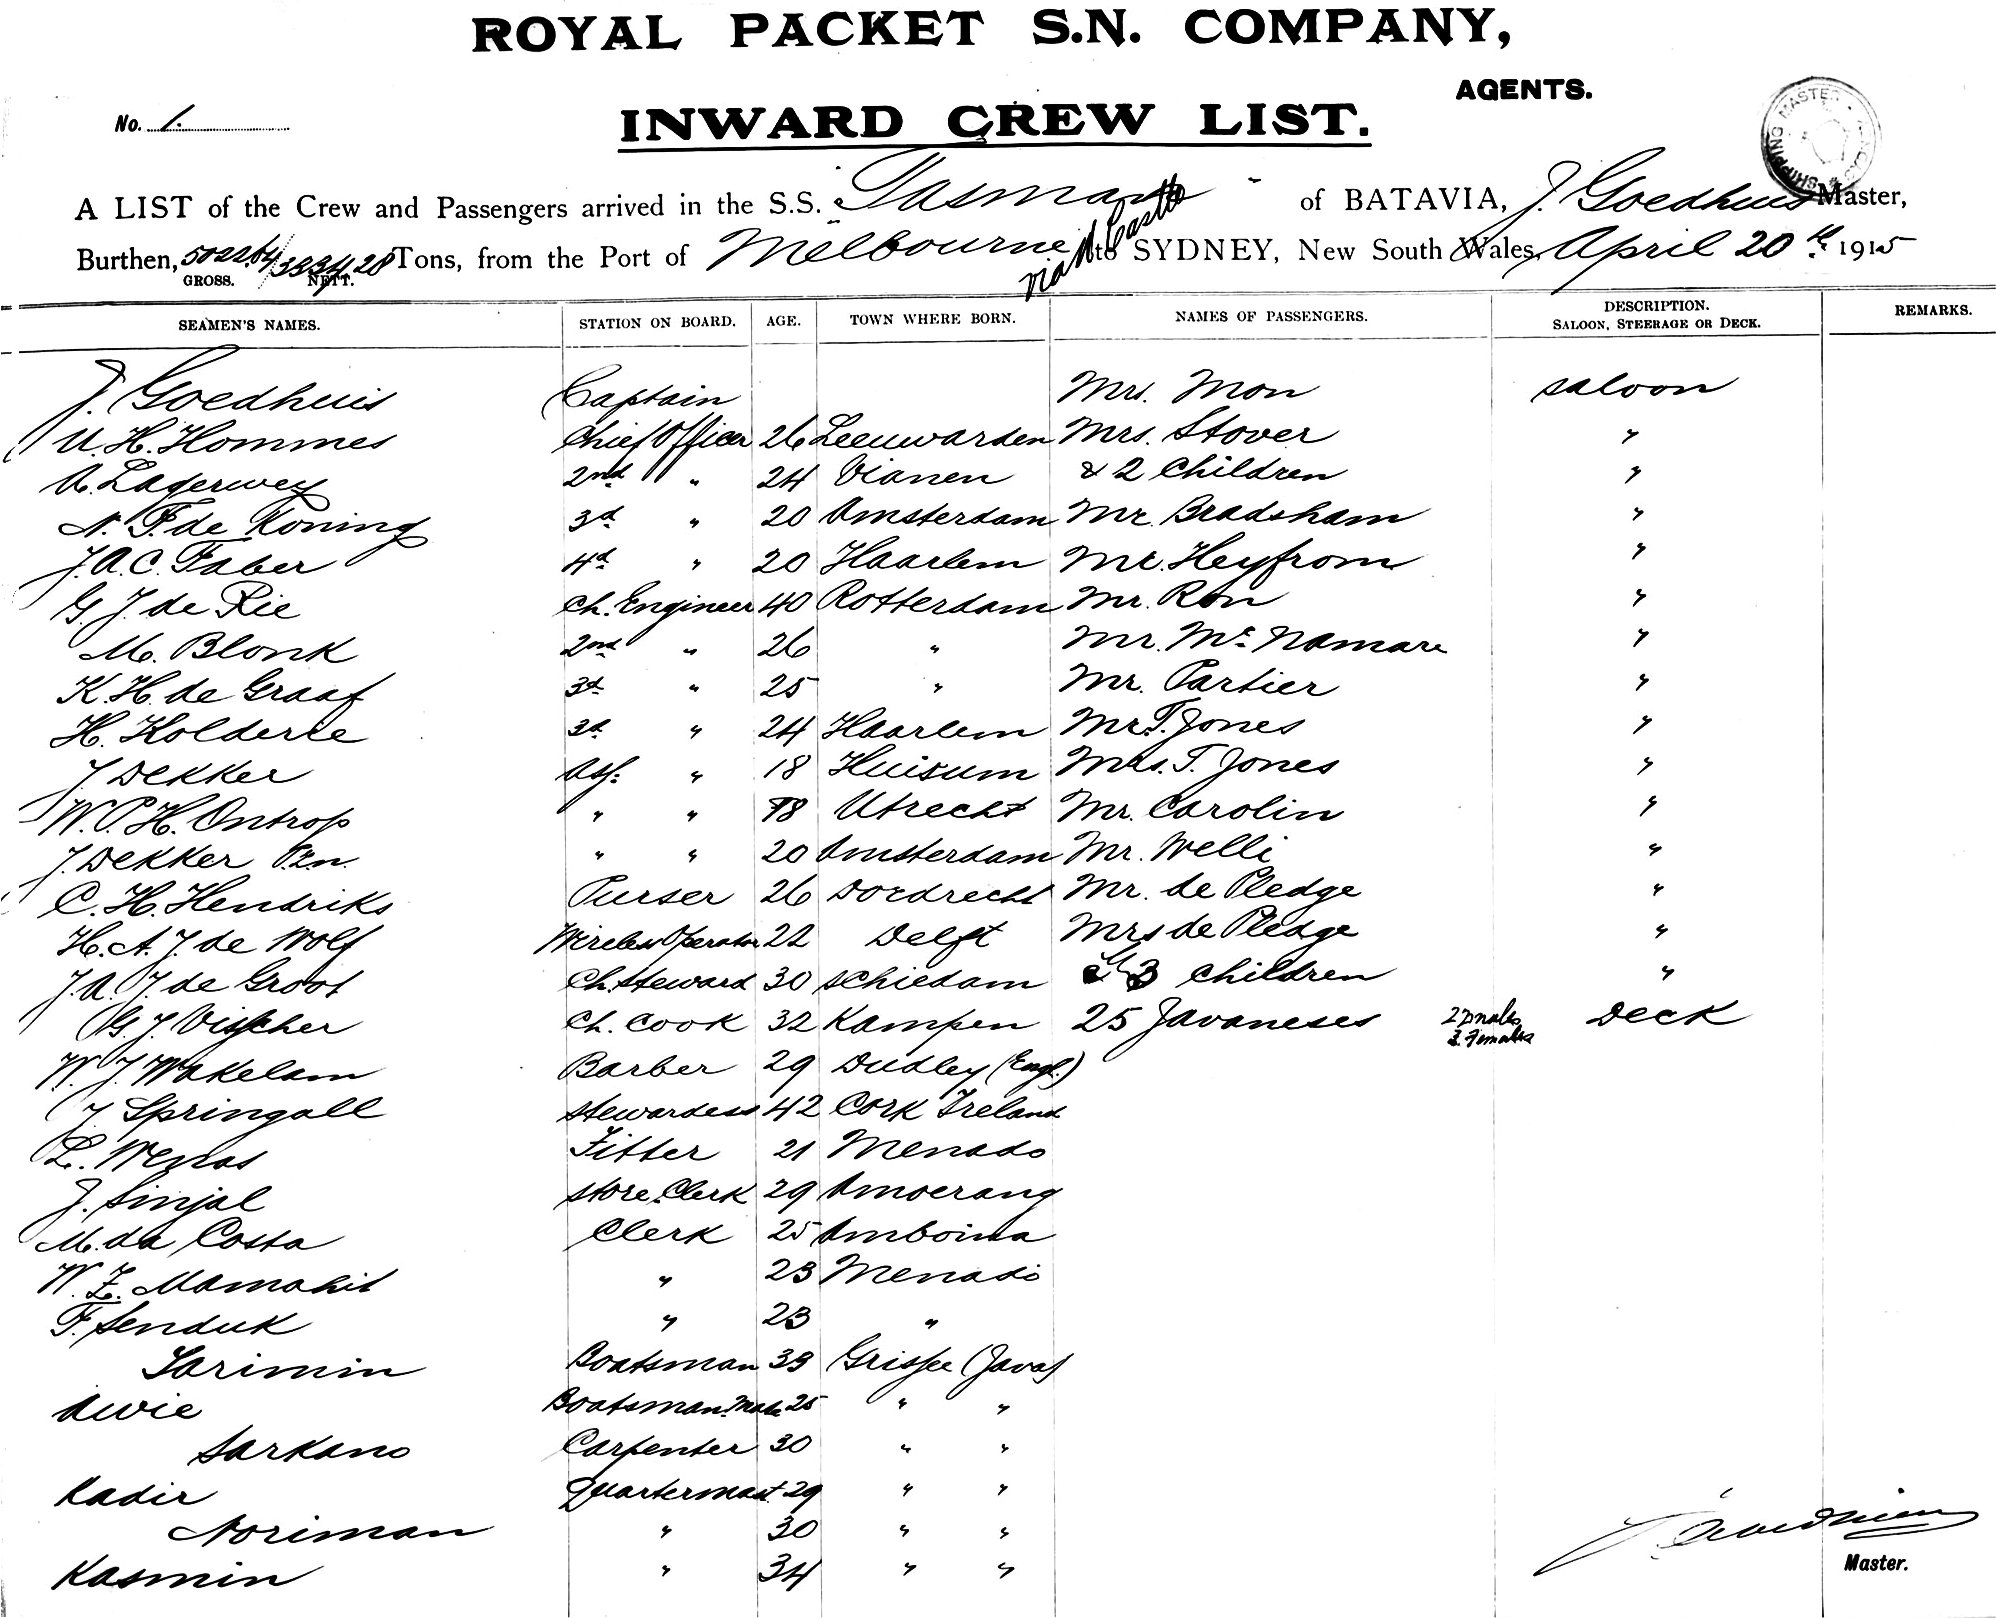 ROYAL PACKET S.N. COMPANY,
AGENTS.
No. 1.
INWARD CREW LIST.
A LIST of the Crew and Passengers arrived in the S.S. Tasman of BATAVIA, J. Goedhuis Master,
Burthen, 5022.64/3334.28 Tons, from the Port of Melbourne via to SYDNEY, New South Wales, April 20th 1915
GROSS. NETT.
SEAMEN'S NAMES. STATION ON BOARD. AGE. TOWN WHERE BORN. NAMES OF PASSENGERS. DESCRIPTION. SALOON, STEERAGE OR DECK. REMARKS.
J. Goedhuis Captain Mrs. Mon saloon
U. H. Hommes Chief Officer 26 Leeuwarden Mrs. Stover "
A. Lagerwey 2nd " 24 Vianen & 2 children "
N. F. de Koning 3d " 20 Amsterdam Mr. Bradsham "
J. A. C. Faber 4d " 20 Haarlem Mr. Heyfrom "
G. J. de Rie Ch. Engineer 40 Rotterdam Mr. Ron "
M. Blonk 2nd " 26 " Mr. Mc Namara "
K. H. de Graaf 3d " 25 " Mr. Partier "
H. Holderle 3d " 24 Haarlem Mr. T. Jones "
J Dekker Ass. " 18 Huisum Mrs. T. Jones "
W. P. H. Ontrop " " 18 Utrecht Mr. Carolin "
J. Dekker Pzn. " " 20 Amsterdam Mr. Welli "
C. H. Hendriks Purser 26 Dordrecht Mr. de Pledge "
H. A. J. de Wolf Wireless Operator 22 Delft Mrs de Pledge "
J. A. J. de Groot Ch. Steward 30 Schiedam & 3 children "
G. J. Visscher Ch. Cook 32 Kampen 25 Javaneses Deck
3 Females
W. J. Wakelam Barber 29 Dudley (Engl.)
J Springall Stewardess 42 Cork Ireland
L. Wenas Fitter 21 Menado
J. Sinjal Store. Clerk 29 Amoerang
M. da Costa Clerk 25 Amboina
W. Z. Mamahit " 23 Menado
F. Senduk " 23 "
Sarimin Boatsman 33 Grissee (Java)
Awie Boatsman. Mate 25 " "
Sarkano Carpenter 30 " "
Kadir Quartermast. 29 " "
Noriman " 30 " "
Kasmin " 34 " "
Master.